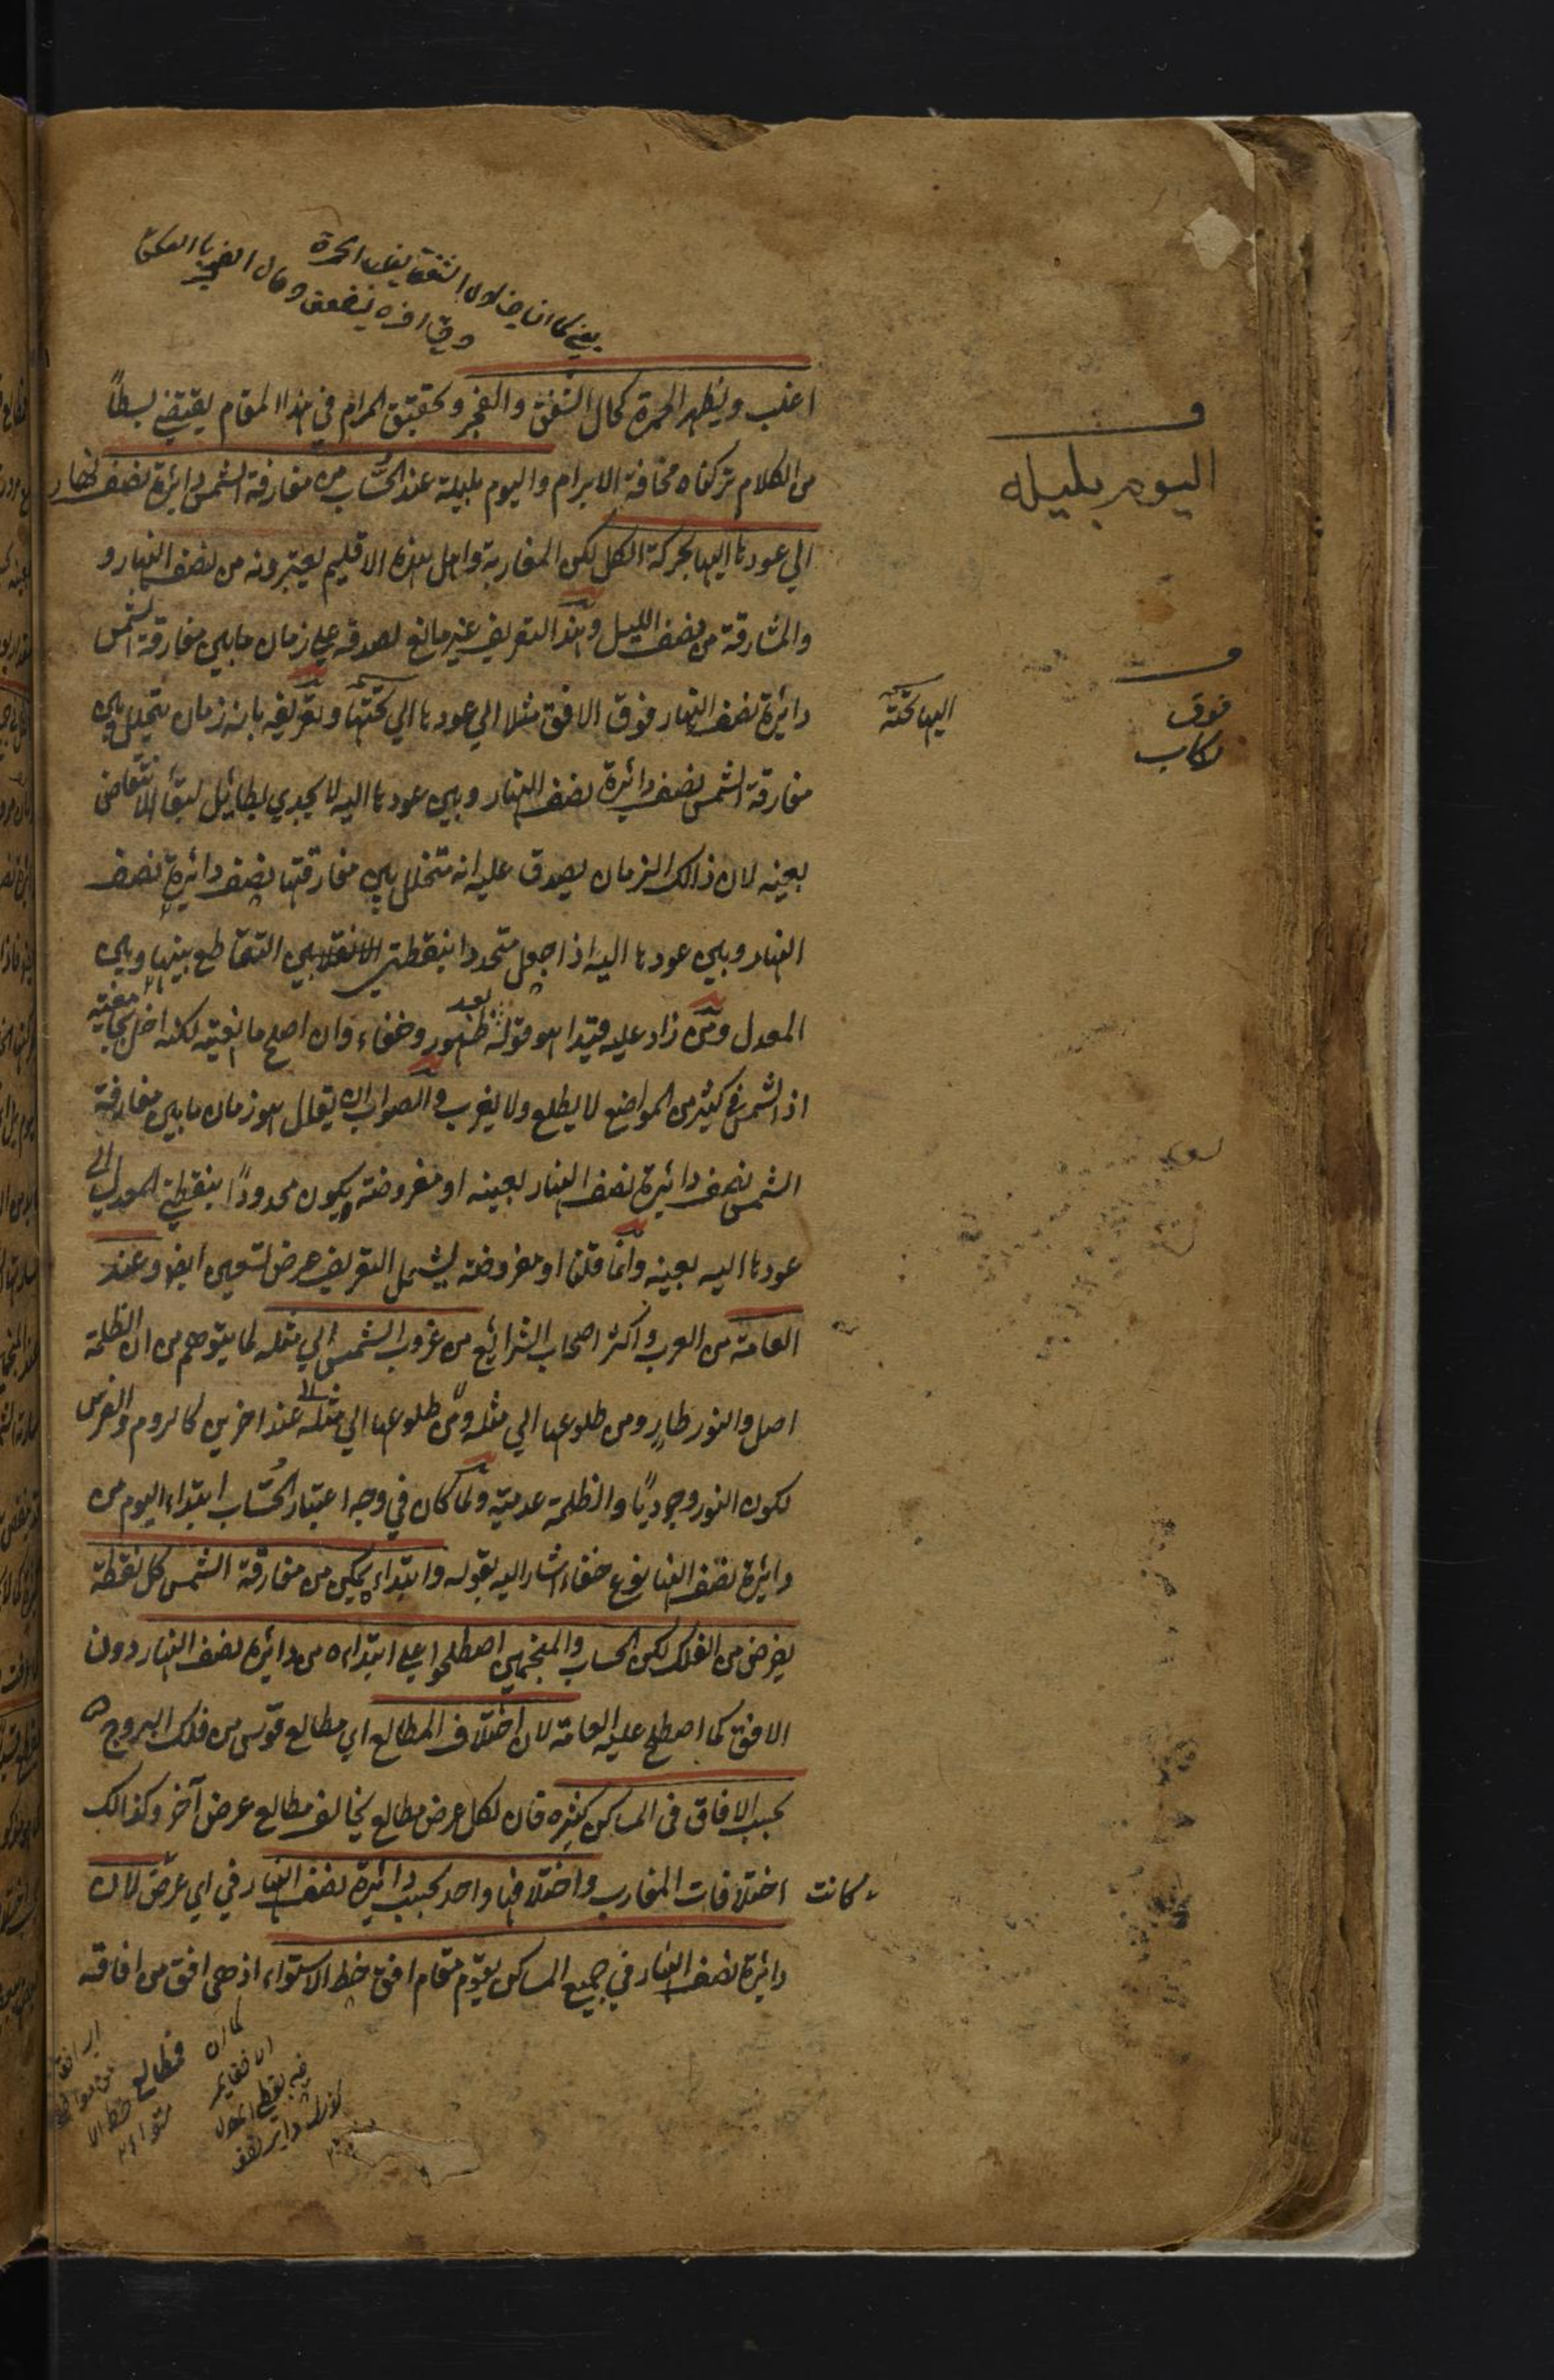 اغلب ويظهر الحمرة كحال الشفق والفجر وتحقيق المرام في هذا المقام يقتضي بسطاً
من الكلام تركناه مخافة الابرام واليوم بليلة عند الحُسّاب من مفارقة الشمس دائرة نصف نهار
الي عودها اليها بحركة الكل لكن المغاربة واهل هذه الاقليم يعتبرونه من نصف النهار و
والمشارقة من نصف الليل وهذا التعريف غير مانع لصدقه علي زمان ما بين مفارقة الشمس
دائرة نصف النهار فوق الافق مثلا الي عودها الي تحتها وتعريفه بانه زمان يتخلل بين
مفارقة الشمس نصف دائرة نصف النهار وبين عودها اليه لا يجدي بطائل لبقاء الانتقاض
بعينه لان ذالك الزمان يصدق عليه انه متخلل بين مفارقتها نصف دائرة نصف
النهار وبين عودها اليه اذا جعل متحددا بنقطتي التقاطع بينها وبين
المعدل ومن زاد عليه قيدا هو قوله بعد ظهور وخفاء وان اصلح مانعيته لكنه اخل بجامعيته
اذ الشمس في كثير من المواضع لا يطلع ولا يغرب والصواب ان يقال هو زمان ما بين مفارقة
الشمس نصف دائرة نصف النهار بعينه او مفروضة ويكون محدوداً بنقطتي المعدل الي
عودها اليه بعينه وانما قلنا او مفروضة ليشمل التعريف عرض تسعين ايضا وعند
العامة من العرب واكثر اصحاب الشرائع من غروب الشمس الي مثله لما يتوهم من ان الظلمة
اصل والنور طارٍ ومن طلوعها الي مثله ومن طلوعها الي مثله عند اخرين كالروم والفرس
لكون النور وجودياً والظلمة عدمية ولما كان في وجه اعتبار الحُسّاب ابتداء اليوم من
دائرة نصف النهار نوع خفاء اشار اليه بقوله وابتداءه يمكن من مفارقة الشمس كل نقطة
يفرض من الفلك لكن الحساب والمنجمين اصطلحوا علي ابتداءه من دائرة نصف النهار دون
الافق كما اصطلح عليه العامة لان اختلاف المطالع اي مطالع قوس من فلك البروج
بحسب الافاق في المساكن كثيرة فان لكل عرض مطالع يخالف مطالع عرض آخر وكذالك
اختلافات المغارب واختلافها واحد بحسب دائرة نصف النهار في اي عرض كانت لان
دائرة نصف النهار في جميع المساكن يقوم مقام افق خط الاستواء اذ هي افق من افاقه
اليوم بليله
فوق
اليها تحته